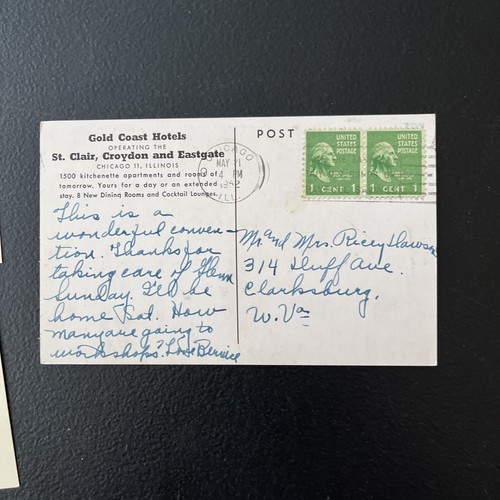 Gold Coast Hotels
OPERATING THE
St. Clair, Croydon and Eastgate
CHICAGO 11, ILLINOIS
1500 kitchenette apartments and rooms of
tomorrow. Yours for a day or an extended
stay. 8 New Dining Rooms and Cocktail Lounges.
This is a
wonderful conven-
tion. Thanks for
taking care of Glenn
Sunday. I'll be
home Sat. How
many are going to
workshops? Love Bernice
POST
CHICAGO
MAY
4 PM
1952
ILL.
UNITED
STATES
POSTAGE
1 CENT 1
UNITED
STATES
POSTAGE
1 CENT 1
Mr. and Mrs. Ricey Hawse
314 Duff Ave.
Clarksburg,
W. Va